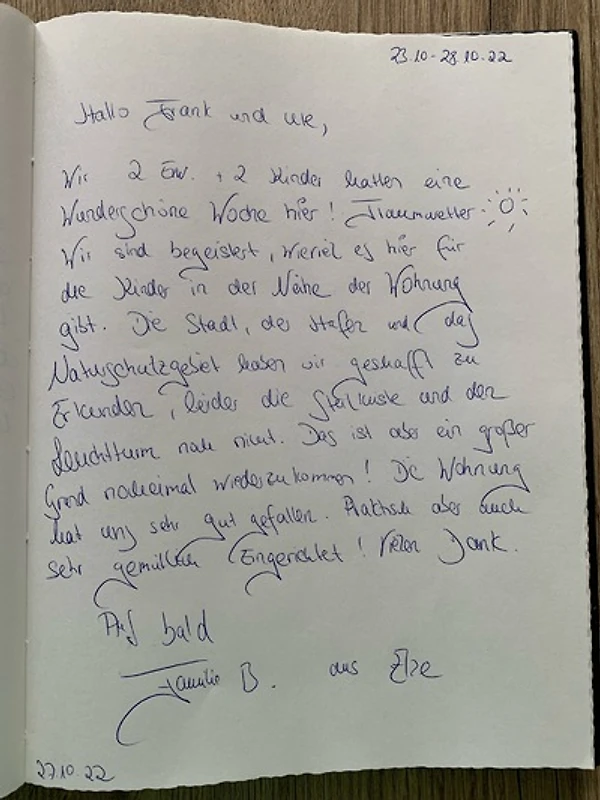 23.10 - 28.10.22
Hallo Frank und Ute,
Wir 2 Erw. + 2 Kinder hatten eine
Wunderschöne Woche hier! Traumwetter
Wir sind begeistert, wieviel es hier für
die Kinder in der Nähe der Wohnung
gibt. Die Stadt, der Hafen und das
Naturschutzgebiet haben wir geshafft zu
Erkunden, leider die Steilküste und den
Leuchtturm noch nicht. Das ist aber ein großer
Grund nocheinmal wiederzukommen! Die Wohnung
hat uns sehr gut gefallen. Praktisch aber auch
sehr gemütlich Eingerichtet! Vielen Dank.
Bis bald
Familie B. aus Elze
27.10.22